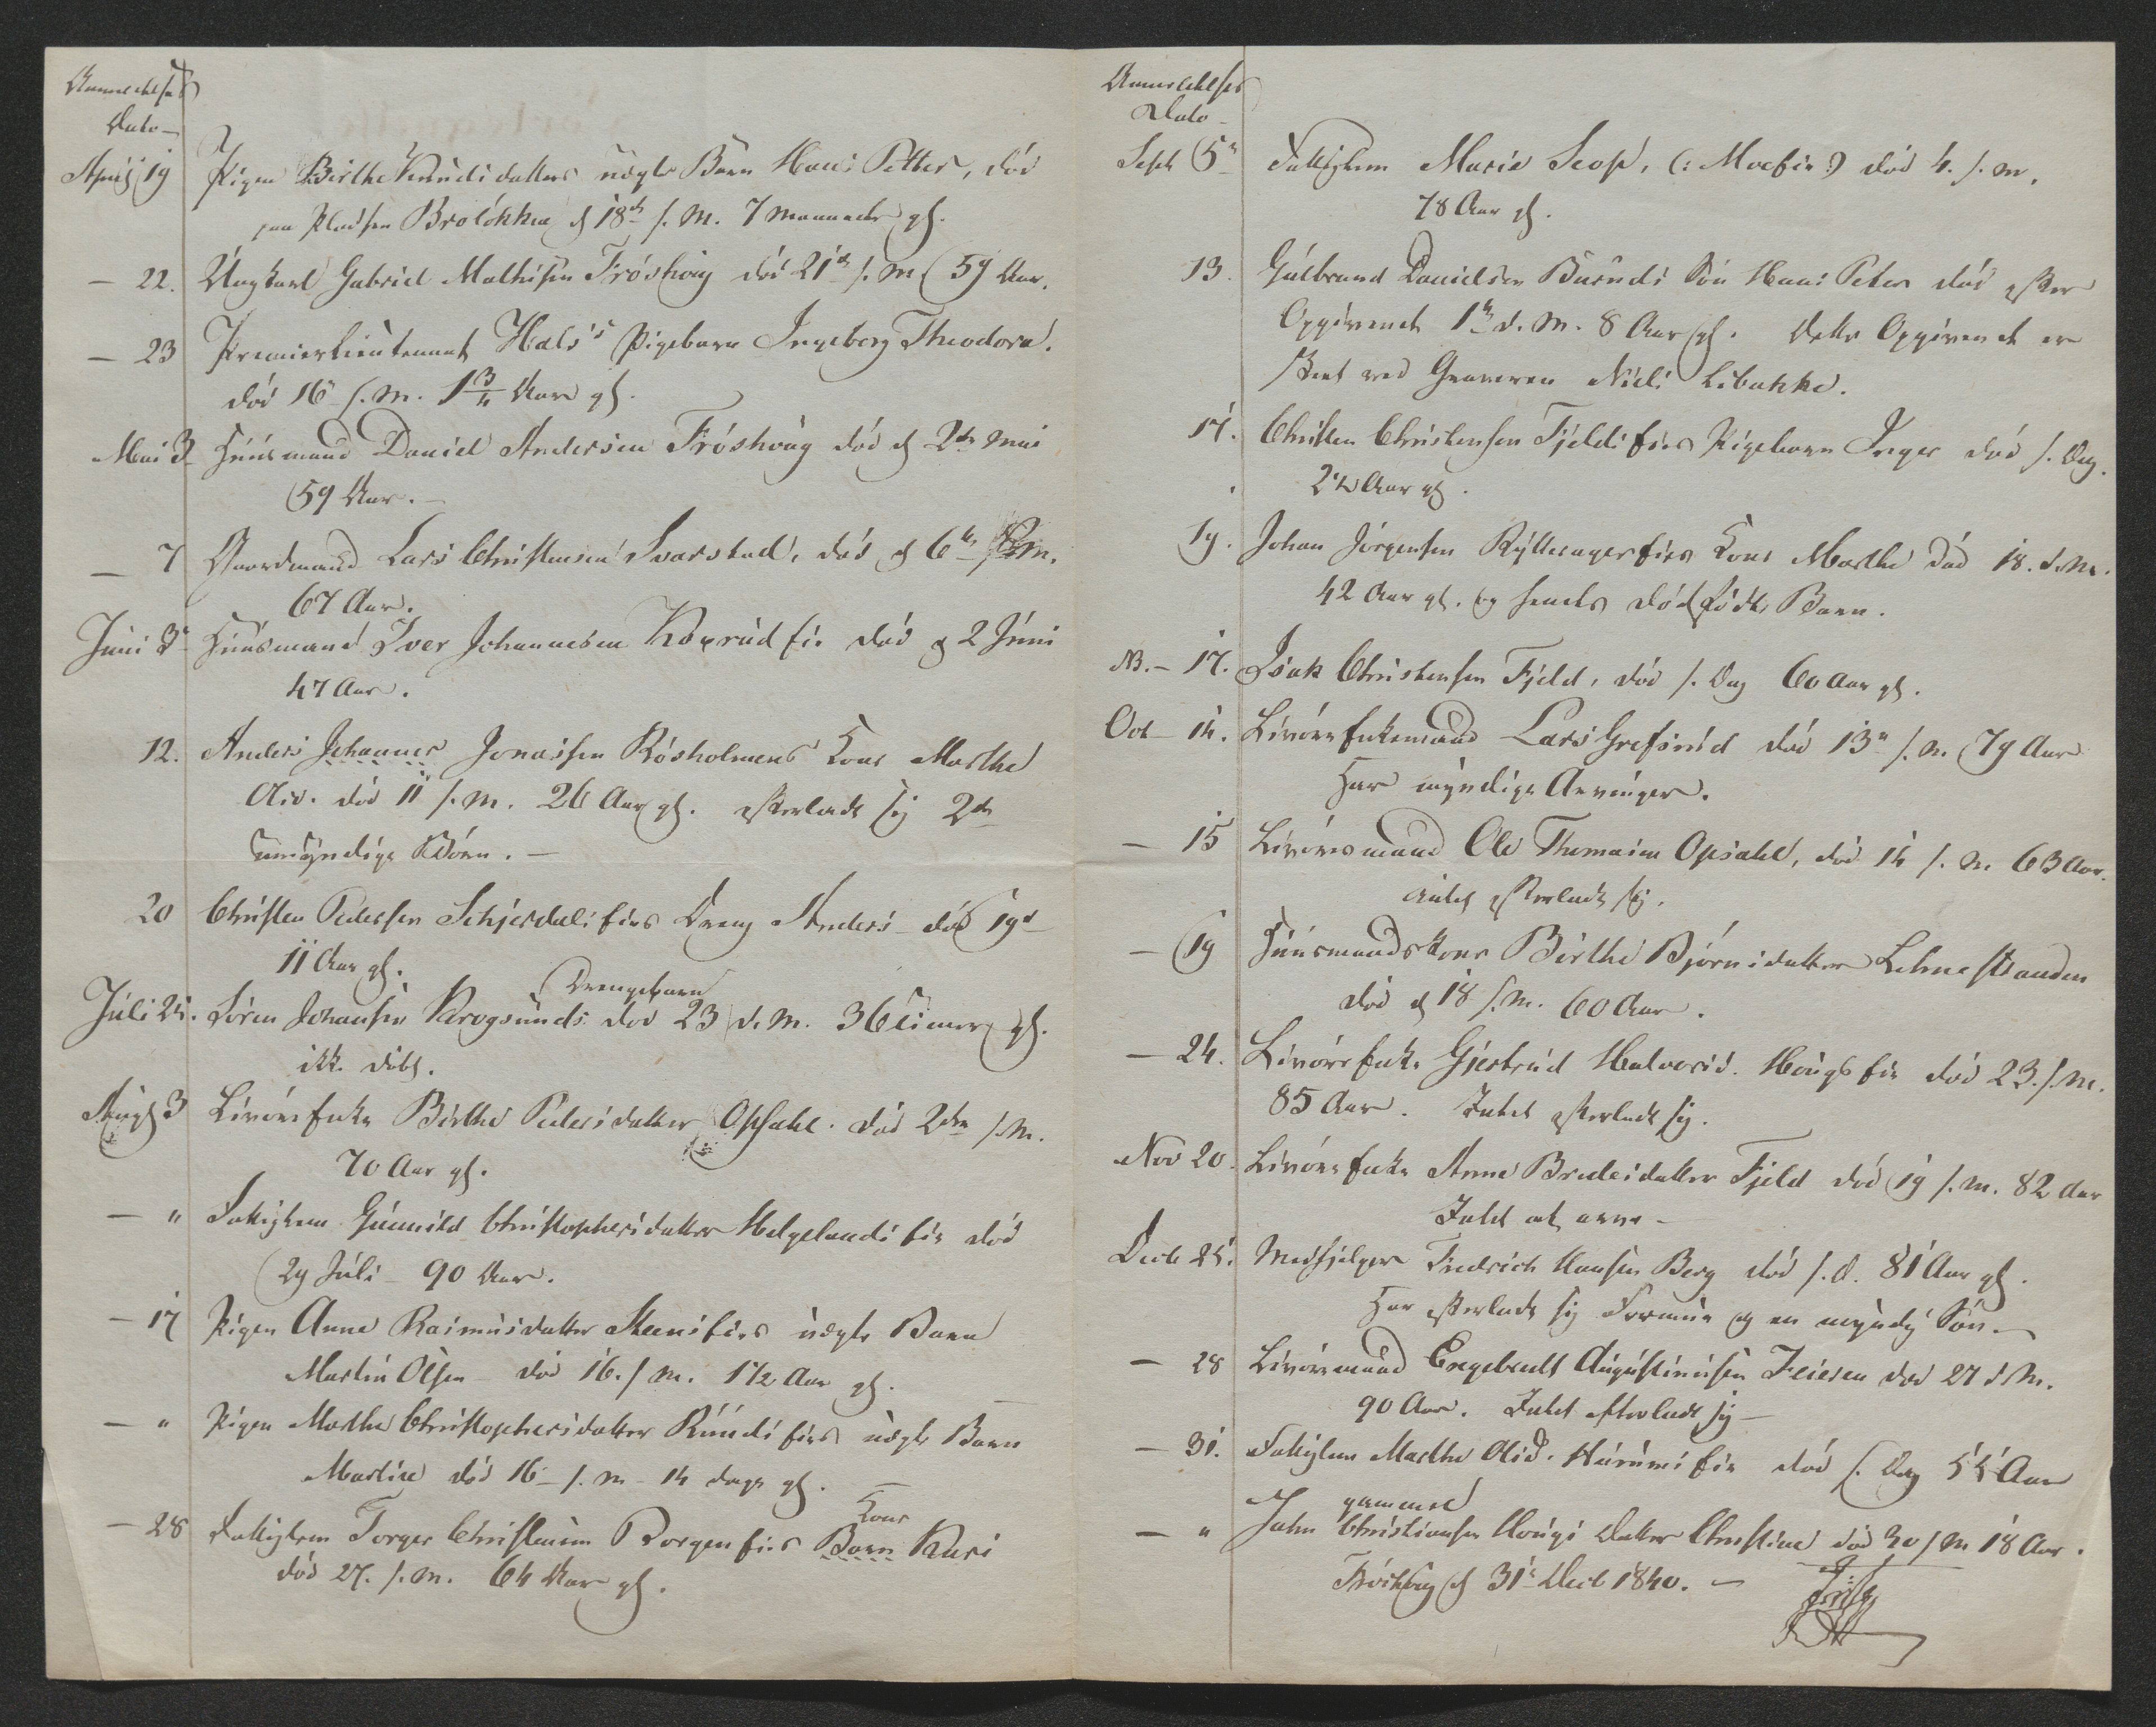 Anmeldelses
Dato –
April 19 Pigen Birthe Knudsdatters uægte Barn Hans Petter, død
paa Pladsen Broløkken d 18de s. M. 7 Maaneder gl.
– 22. Ungkarl Gabriel Mathisen Frøshoug død 21de s. M. 59 Aar.
– 23 Premierlieutenant Hals's Pigebarn Ingeborg Theodora.
død 16 s. M. 1 3/4 Aar gl.
Mai 3 Huusmand Daniel Andersen Frøshoug død d 2den Mai
59 Aar. –
– 7 Gaardmand Lars Christensen Svarstad, død d 6te s. M.
67 Aar.
Juni 3 Huusmand Iver Johannesen Koxrud eie død d 2 Juni
47 Aar.
12. Anders Johannes Jonassen Røsholmens Kone Marthe
Olsd. død 11 s. M. 26 Aar gl. efterladt sig 2de
umyndige Børn. –
20 Christen Pedersen Schjerdals eies Dreng Anders død 19de
11 Aar gl.
Drengebarn
Juli 25. Søren Johansen Krogsunds død 23 d. M. 36 Timer gl.
ikke døbt.
Augst 3 Livøreenke Birthe Pedersdatter Opsahl. død 2den s. M.
70 Aar gl.
– " Fattiglem Gunnild Christophersdatter Helgelands eie død
29 Juli – 90 Aar.
– 17 Pigen Anne Rasmusdatter Steens eies uægte Barn
Martin Olsen – død 16. s. M. 1 1/2 Aar gl.
– " Pigen Marthe Christophersdatter Ruuds eies uægte Barn
Martine død 16 – s. M – 14 Dage gl.
Kone
– 28 Fattiglem Torger Christensen Borgen eies Barn Kari
død 27. s. M. 64 Aar gl.
Anmeldelses
Dato –
Septb 5te Fattiglem Marie død 4. s. M.
78 Aar gl.
13. Gulbrand Danielsen Buruds Søn Hans Peter død efter
Opgivende 1te d. M. 8 Aar gl. Dette Opgivende er
skeet ved Graveren Niels Libakke.
17. Christen Christensen Fjelds eies Pigebarn Inger død s. Dag.
2 1/2 Aar gl.
19. Johan Jørgensen eies Kone Marthe død 18. d. M.
42 Aar gl. og hendes dødfødte Barn.
NB. – 17. Isak Christensen Fjeld, død s. Dag 60 Aar gl.
Oct – 14. Livøreenkemand Lars Grefsrud død 13de s. M. 79 Aar
Har myndige Arvinger.
– 15 Livøremand Ole Thomasen Opsahl, død 14 s. M. 63 Aar.
intet efterladt sig.
– 19 Huusmandskone Birthe Bjørnsdatter Lehnestranden
død d 18 s. M. 60 Aar.
– 24. Livøreenke Gjertrud Halvorsd. Hougs eie død 23. s. M.
85 Aar. Intet efterladt sig.
Nov 20. Livøreenke Anne Bredesdatter Fjeld død 19 s. M. 82 Aar
Intet at arve –
Decb 25. Medhjelper Fredrich Hansen Berg død s. D. 81 Aar gl.
Har efterladt sig Formue og en myndig Søn. –
– 28 Livøremand Engebreth Augustinusen død 27 d. M.
90 Aar. Intet efterladt sig –
– 31. Fattiglem Marthe Olsd. eie død s. Dag 55 Aar
gammel
– " John Christiansen Hougs Datter Christine død 30 s. M 18 Aar.
Frøshoug d 31te Decb 1840. –